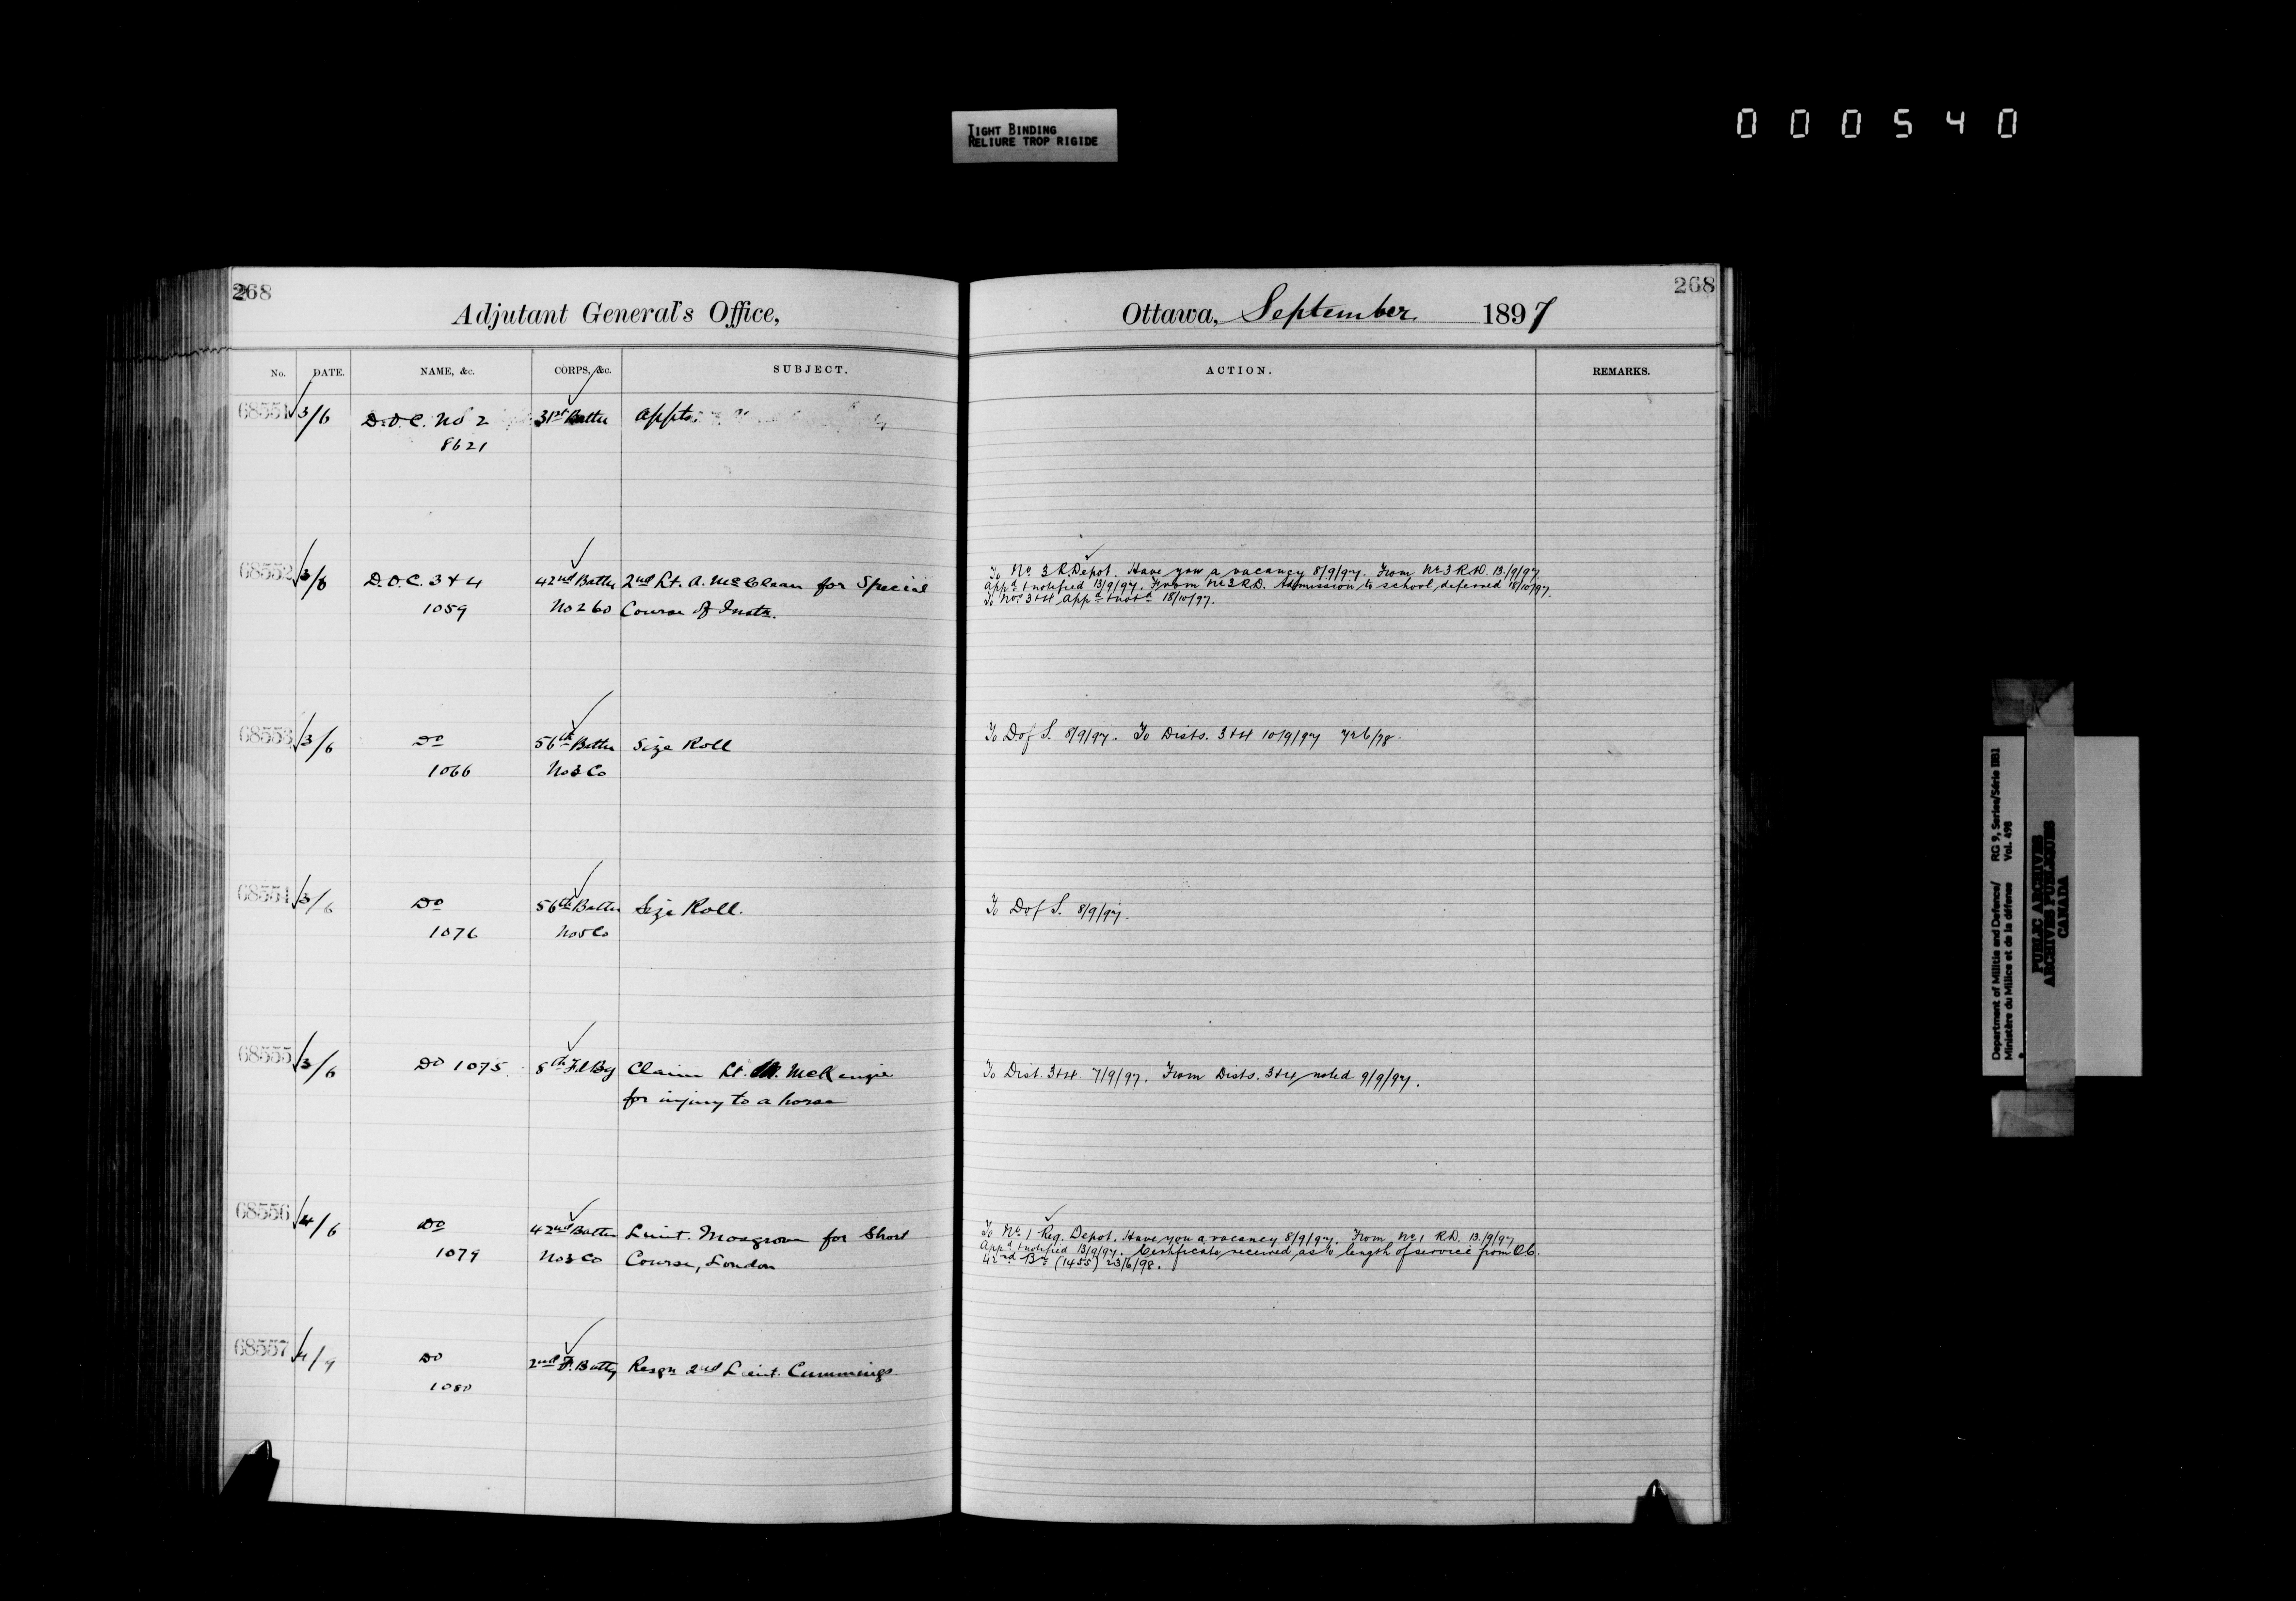 TIGHT BINDING
RELIURE TROP RIGIDE
000540
268
Adjutant General's Office,
No. DATE. NAME, &c. CORPS, &c. SUBJECT.
68551 3/6 D.O.C. No 2 31st Battn Appts.
8621
68552 3/6 D.O.C. 3 & 4 42nd Battn 2nd Lt. A. McClean for Special
1059 No 2 Co Course of Instn.
68553 3/6 Do 56th Battn Size Roll
1066 No 3 Co
68554 3/6 Do 56th Battn Size Roll.
1076 No 5 Co
68555 3/6 Do 1075 8th Fd By Claim Lt. McKenzie
for injury to a horse
68556 4/6 Do 42nd Battn Lieut. Mosgrove for Short
1079 No 3 Co Course, London
68557 4/9 Do 2nd F. Batty Resgn 2nd Lieut. Cummings
1080
268
Ottawa, September 1897
ACTION. REMARKS.
To No. 3 R. Depot. Have you a vacancy 8/9/97. From No 3 R.D. 13/9/97.
Appd & notified 13/9/97. From No 3 R.D. Admission to school deferred 18/10/97.
To Nos 3 & 4 Appd & notd 18/10/97.
To D of S. 8/9/97. To Dists. 3 & 4 10/9/97
To D of S. 8/9/97.
To Dist. 3 & 4 7/9/97. From Dists. 3 & 4 noted 9/9/97.
To No. 1 Reg. Depot. Have you a vacancy 8/9/97. From No. 1 R.D. 13/9/97
Appd & notified 13/9/97. Certificate received as to length of service from Ob.
42nd Bn (1455) 23/6/98.
Department of Militia and Defence/ RG 9, Series/Série IIB1
Ministère du Milice et de la défense Vol. 498
PUBLIC ARCHIVES
ARCHIVES PUBLIQUES
CANADA